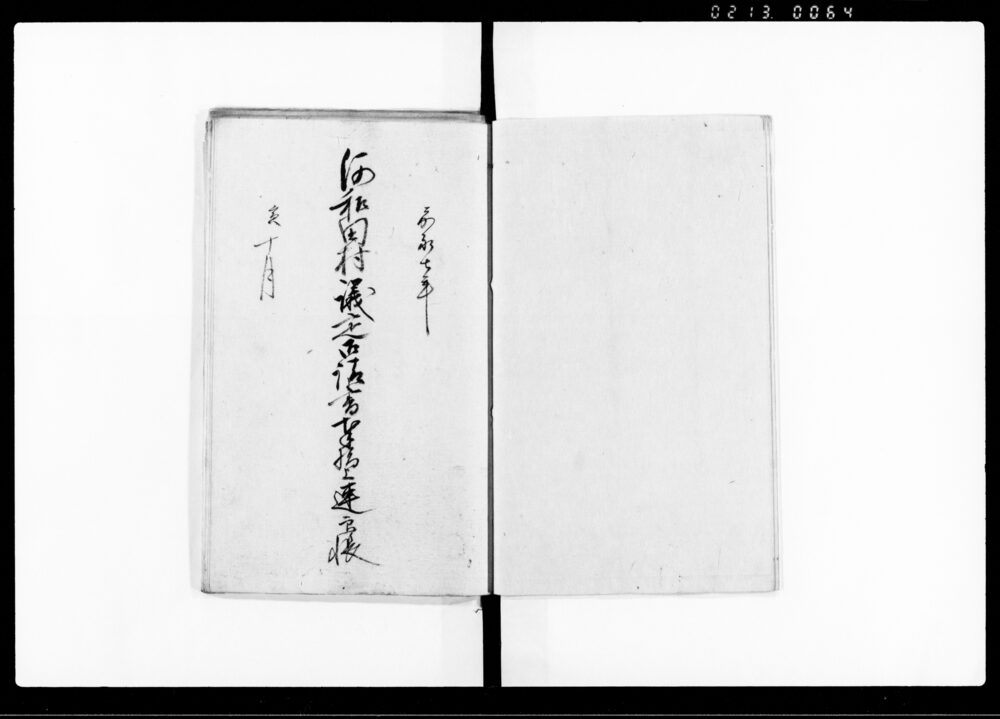 0213. 0064
嘉永七年
河和田村議定御請書奉指上連印帳
寅十月